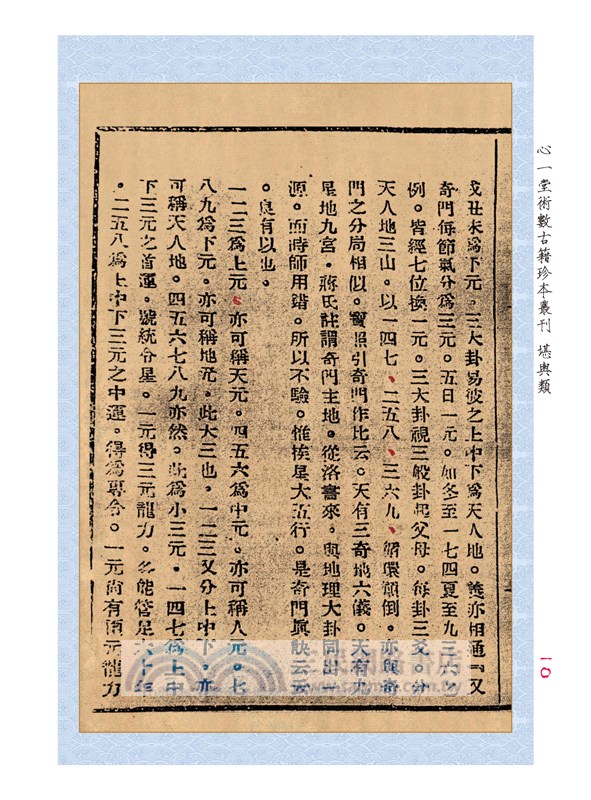 心一堂術數古籍珍本叢刊 堪輿類
一〇
戌丑未爲下元。三大卦易彼之上中下爲天人地。義亦相通。又
奇門每節氣分爲三元。五日一元。如冬至一七四夏至九三六之
例。皆經七位換一元。三大卦視三般卦起父母。每卦三爻。分
天人地三山。以一四七、二五八、三六九、循環顛倒。亦與奇
門之分局相似。寶照引奇門作比云。天有三奇地六儀。天有九
星地九宮。蔣氏註謂奇門主地。從洛書來。與地理大卦同出一
源。而時師用錯。所以不驗。惟挨星大五行。是奇門眞訣云云
。良有以也。
一二三爲上元。亦可稱天元。四五六爲中元。亦可稱人元。七
八九爲下元。亦可稱地元。此大三也。一二三又分上中下。亦
可稱天人地。四五六七八九亦然。此爲小三元。一四七爲上中
下三元之首運。號統令星。一元得三元龍力。多能管足六十年
。二五八爲上中下三元之中運。得爲專令。一元尚有兩元龍力